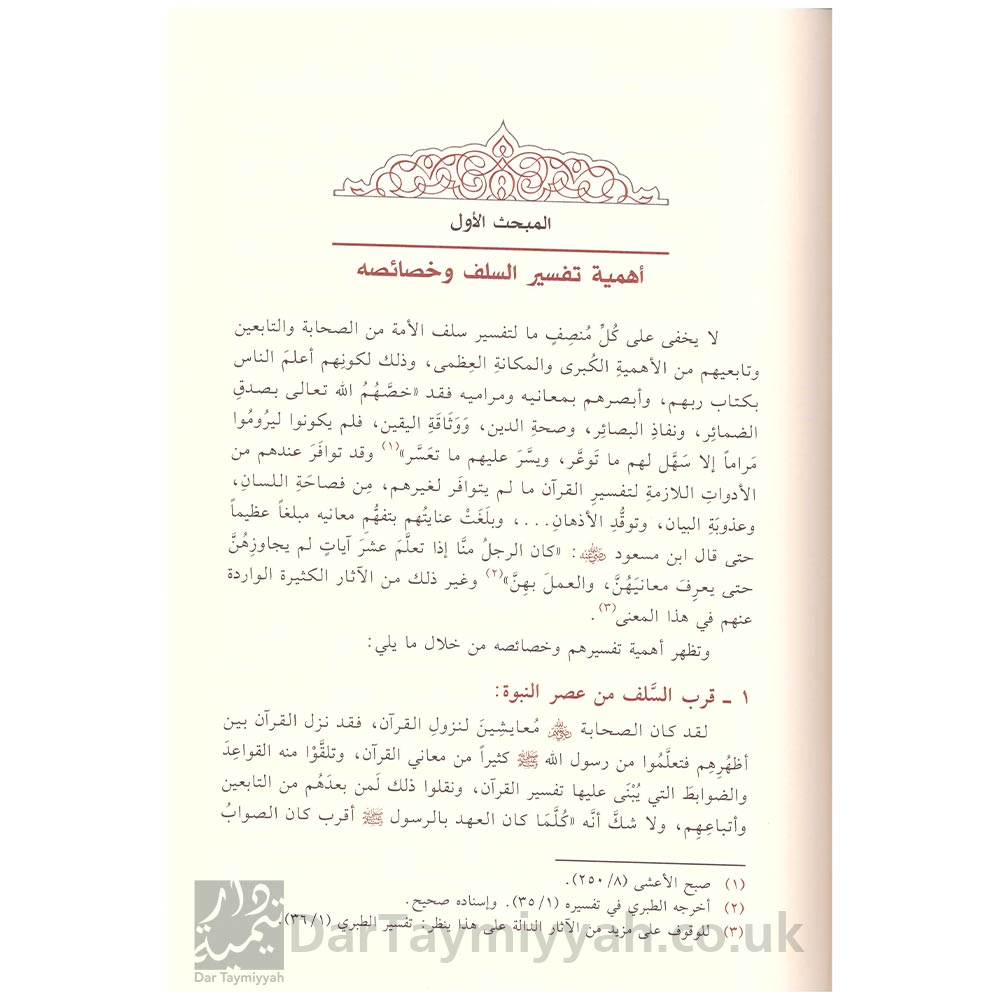 المبحث الأول
أهمية تفسير السلف وخصائصه
لا يخفى على كُلِّ مُنصِفٍ ما لتفسير سلف الأمة من الصحابة والتابعين
وتابعيهم من الأهميةِ الكُبرى والمكانةِ العِظمى، وذلك لكونِهم أعلمَ الناس
بكتاب ربهم، وأبصرهم بمعانيه ومراميه فقد «خصَّهُمُ الله تعالى بصدقِ
الضمائِر، ونفاذِ البصائِر، وصحةِ الدين، وَوَثَاقَةِ اليقين، فلم يكونوا ليرُومُوا
مَراماً إلا سَهَّل لهم ما تَوعَّر، ويسَّرَ عليهم ما تعَسَّر»(١) وقد توافَرَ عندهم من
الأدواتِ اللازمةِ لتفسيرِ القرآن ما لم يتوافَر لغيرهم، مِن فصاحَةِ اللسانِ،
وعذوبَةِ البيان، وتوقُّدِ الأذهانِ...، وبلَغَتْ عنايتُهم بتفهُّمِ معانيه مبلغاً عظيماً
حتى قال ابن مسعود رضي الله عنه: «كان الرجلُ منَّا إذا تعلَّمَ عشرَ آياتٍ لم يجاوزِهُنَّ
حتى يعرِفَ معانيَهُنَّ، والعملَ بهِنَّ»(٢) وغير ذلك من الآثار الكثيرة الواردة
عنهم في هذا المعنى(٣).
وتظهر أهمية تفسيرهم وخصائصه من خلال ما يلي:
١ ـ قرب السَّلف من عصر النبوة:
لقد كان الصحابة رضي الله عنهم مُعايشِينَ لنزولِ القرآن، فقد نزل القرآن بين
أظهُرِهِم فتعلَّمُوا من رسول الله ﷺ كثيراً من معاني القرآن، وتلقَّوْا منه القواعِدَ
والضوابطَ التي يُبْنَى عليها تفسير القرآن، ونقلوا ذلك لَمن بعدَهُم من التابعين
وأتباعِهِم، ولا شكَّ أنَّه «كُلَّمَا كان العهد بالرسول ﷺ أقرب كان الصوابُ
(١) صبح الأعشى (٨/ ٢٥٠).
(٢) أخرجه الطبري في تفسيره (١/ ٣٥). وإسناده صحيح.
(٣) للوقوف على مزيد من الآثار الدالة على هذا ينظر: تفسير الطبري (١/ ٣٦).
دار تيمية
Dar Taymiyyah
DarTaymiyyah.co.uk